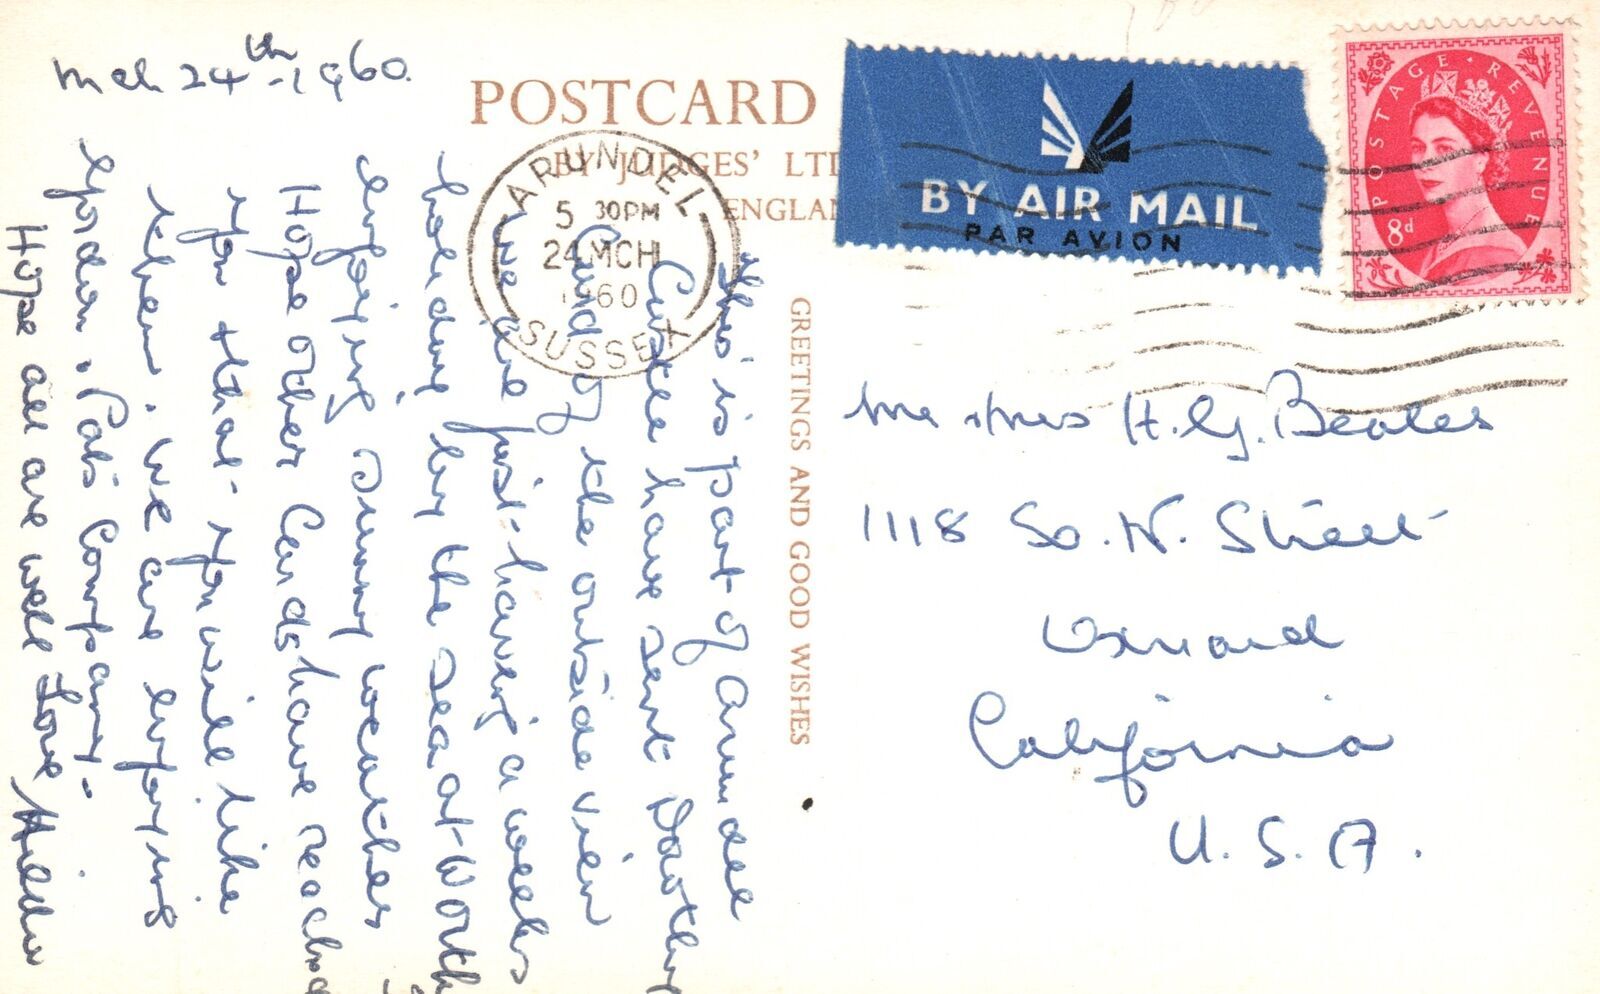 Mch 24th-1960.
POSTCARD
BY JUDGES' LTD
ENGLAN
ARUNDEL
5 30PM
24 MCH
1960
SUSSEX
BY AIR MAIL
PAR AVION
POSTAGE REVENUE
8d
GREETINGS AND GOOD WISHES
This is part of Arundel
Castle have sent Dorothy
Card of the outside view
we are just having a weeks
holiday by the sea at Worth
enjoying sunny weather
Hope other Cards have reached
you & that you will like
them. We are enjoying
Gordon & Pats Company-
Hope all are well Love Hilda
Mr & Mrs H.G. Beales
1118 So. N. Street
Oxnard
California
U.S.A.